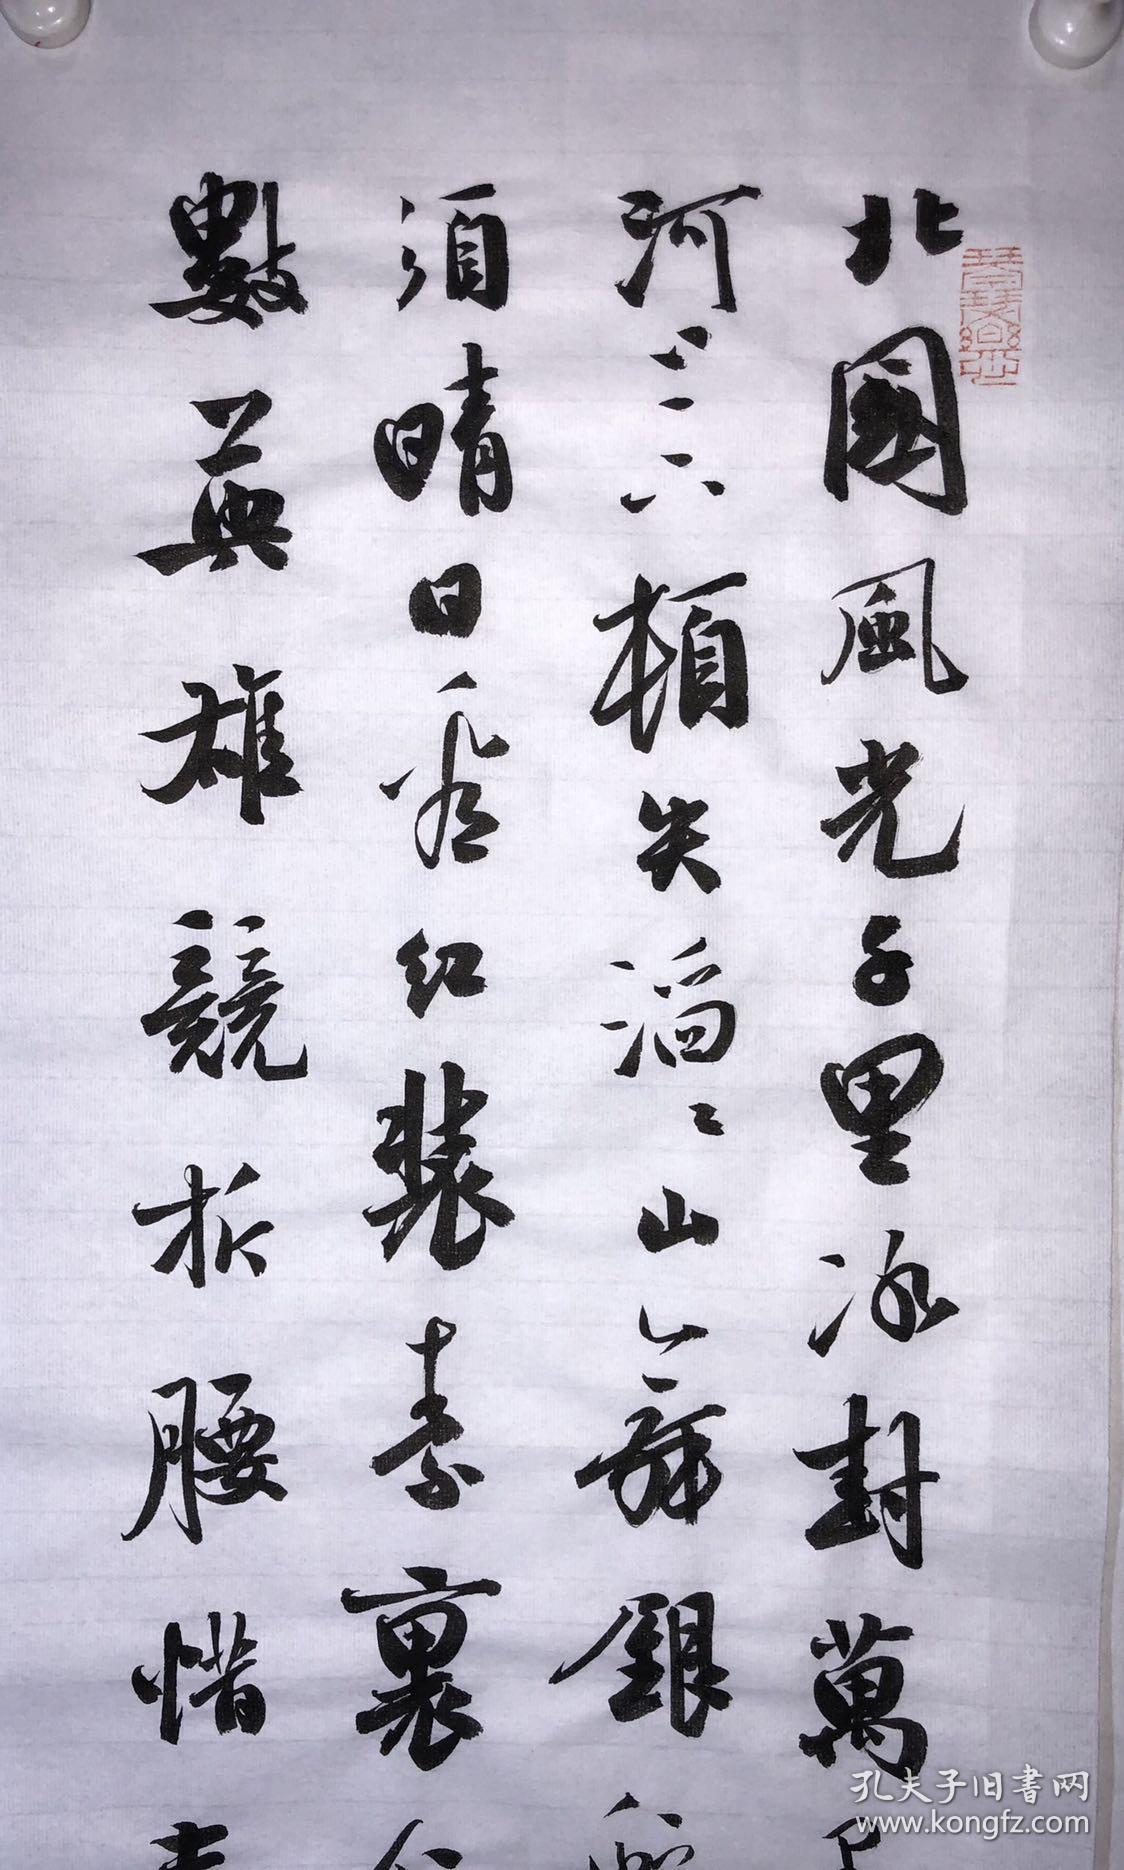 北國風光千里冰封萬
河上下頓失滔〻山舞銀
須晴日看紅裝素裹
數英雄競折腰惜
孔夫子旧書网
www.kongfz.com